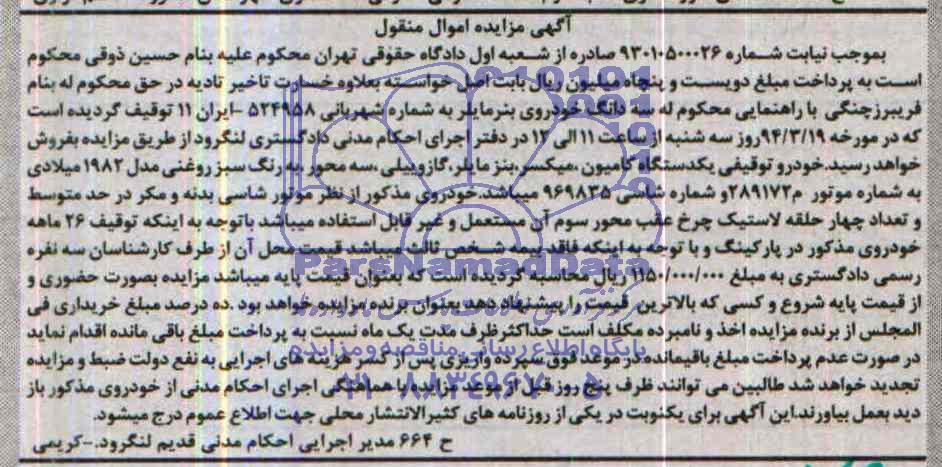 آگهی مزایده اموال منقول
بموجب نیابت شماره ۹۳۰۱۰۵۰۰۰۲۶ صادره از شعبه اول دادگاه حقوقی تهران محکوم علیه بنام حسین ذوقی محکوم
است به پرداخت مبلغ دویست و پنجاه میلیون ریال بابت اصل خواسته بعلاوه خسارت تاخیر تادیه در حق محکوم له بنام
فریبرزچنگی با راهنمایی محکوم له سه دانگ خودروی بنزمایلر به شماره شهربانی ۵۲۴۹۵۸ -ایران ۱۱ توقیف گردیده است
که در مورخه ۹۴/۳/۱۹روز سه شنبه از ساعت ۱۱ الی ۱۲ در دفتر اجرای احکام مدنی دادگستری لنگرود از طریق مزایده بفروش
خواهد رسید.خودرو توقیفی یکدستگاه کامیون ،میکسر،بنز مایلر،گازوییلی ،سه محور به رنگ سبز روغنی مدل ۱۹۸۲میلادی
به شماره موتور م۲۸۹۱۷۲و شماره شاسی ۹۶۹۸۳۵ میباشد.خودروی مذکور از نظر موتور شاسی بدنه و مکر در حد متوسط
و تعداد چهار حلقه لاستیک چرخ عقب محور سوم آن مستعمل و غیر قابل استفاده میباشد باتوجه به اینکه توقیف ۲۶ ماهه
خودروی مذکور در پارکینگ و با توجه به اینکه فاقد بیمه شخص ثالث میباشد قیمت محل آن از طرف کارشناسان سه نفره
رسمی دادگستری به مبلغ ریال محاسبه گردیده است که بعنوان قیمت پایه میباشد.مزایده بصورت حضوری و
از قیمت پایه شروع و کسی که بالاترین قیمت را پیشنهاد دهد بعنوان برنده مزایده خواهد بود .ده درصد مبلغ خریداری فی
المجلس از برنده مزایده اخذ و نامبرده مکلف است حداکثر ظرف مدت یک ماه نسبت به پرداخت مبلغ باقی مانده اقدام نماید
در صورت عدم پرداخت مبلغ باقیمانده در موعد فوق سپرده واریزی پس از کسر هزینه های اجرایی به نفع دولت ضبط و مزایده
تجدید خواهد شد طالبین می توانند ظرف پنج روز قبل از موعد مزایده با هماهنگی اجرای احکام مدنی از خودروی مذکور باز
دید بعمل بیاورند.این آگهی برای یکنوبت در یکی از روزنامه های کثیرالانتشار محلی جهت اطلاع عموم درج میشود.
ح ۶۶۴ مدیر اجرایی احکام مدنی قدیم لنگرود.-کریمی
ParsNamadData
پایگاه اطلاع رسانی مناقصه و مزایده
۰۲۱-۸۸۳۴۹۶۷۰-۵